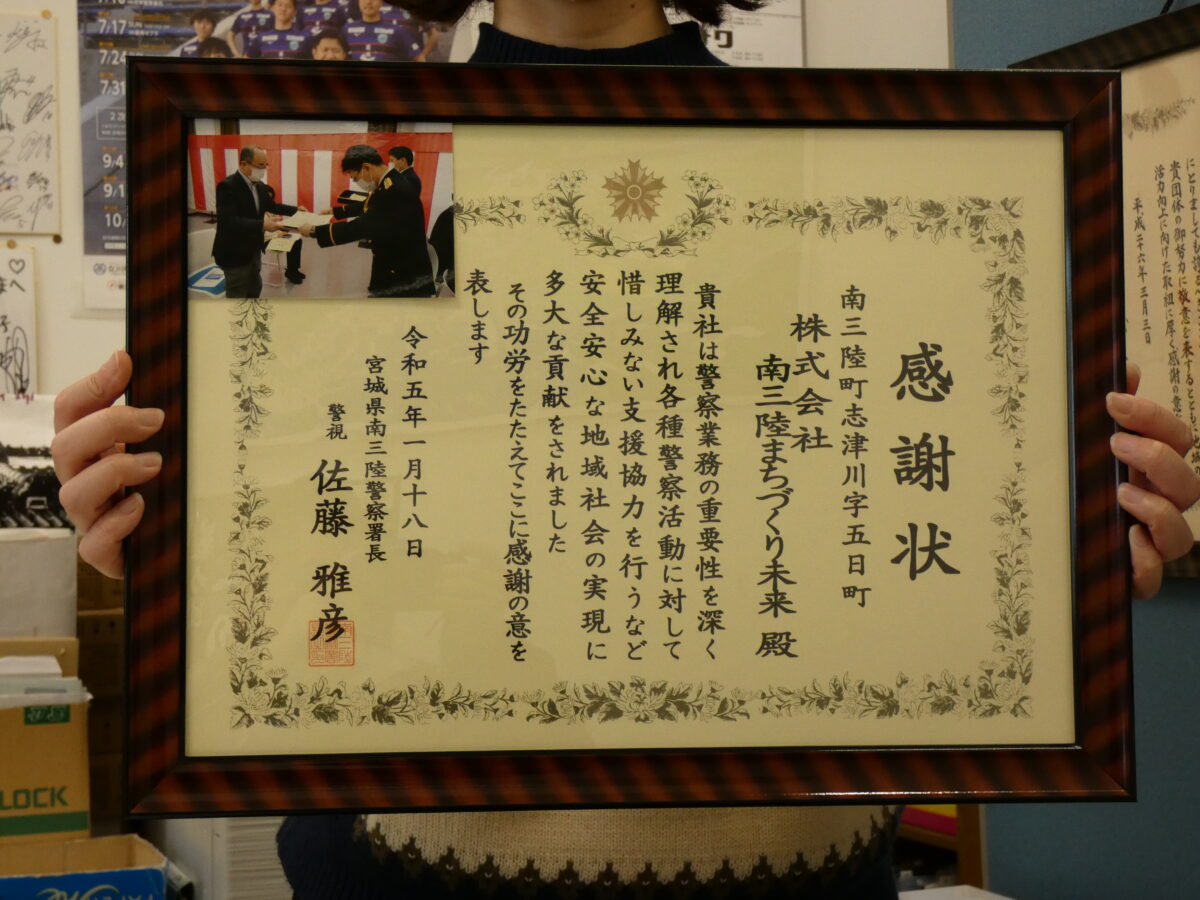 感謝状
南三陸町志津川字五日町
株式会社
南三陸まちづくり未来 殿
貴社は警察業務の重要性を深く
理解され各種警察活動に対して
惜しみない支援協力を行うなど
安全安心な地域社会の実現に
多大な貢献をされました
その功労をたたえてここに感謝の意を
表します
令和五年一月十八日
宮城県南三陸警察署長
警視 佐藤 雅彦
貴団体の御努力に敬意を表するとともに
活力向上に向けた取組に厚く感謝の意
平成二十六年三月三日
7/17
7/24
7/31
9/4
LOCK